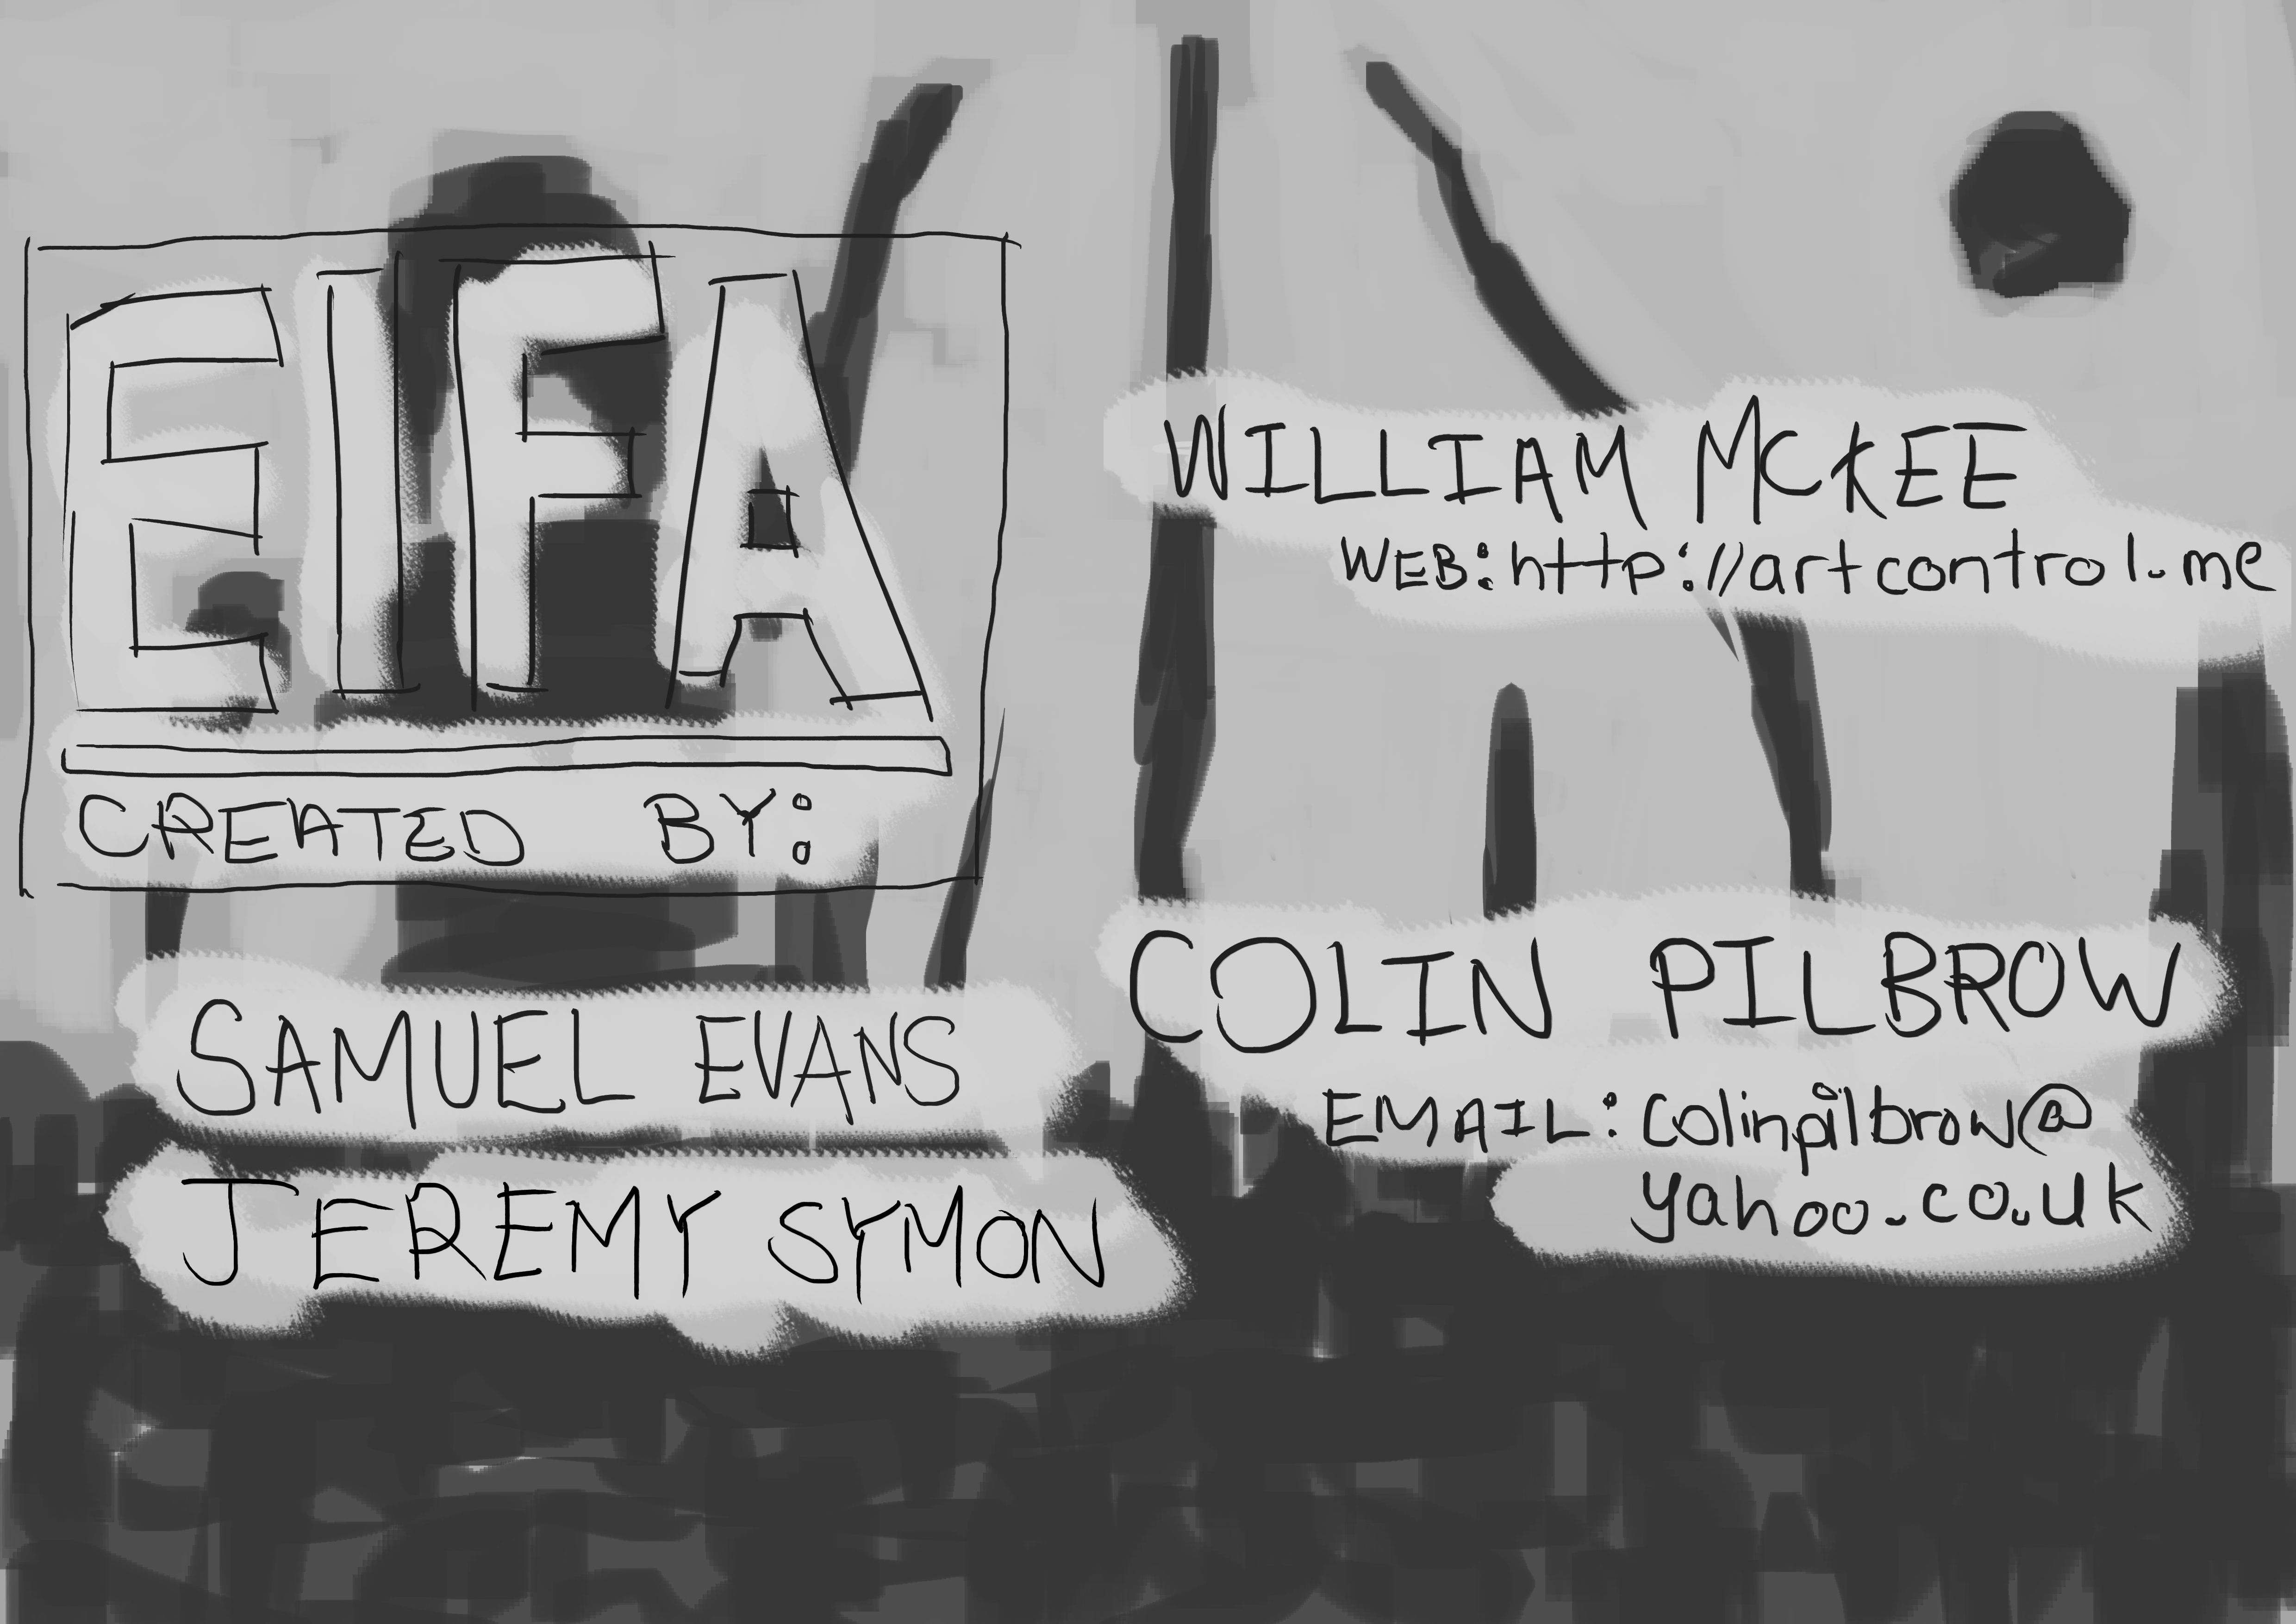 EIFA
CREATED BY:
SAMUEL EVANS
JEREMY SYMON
WILLIAM MCKEE
WEB: http://artcontrol.me
COLIN PILBROW
EMAIL: colinpilbrow@
yahoo.co.uk